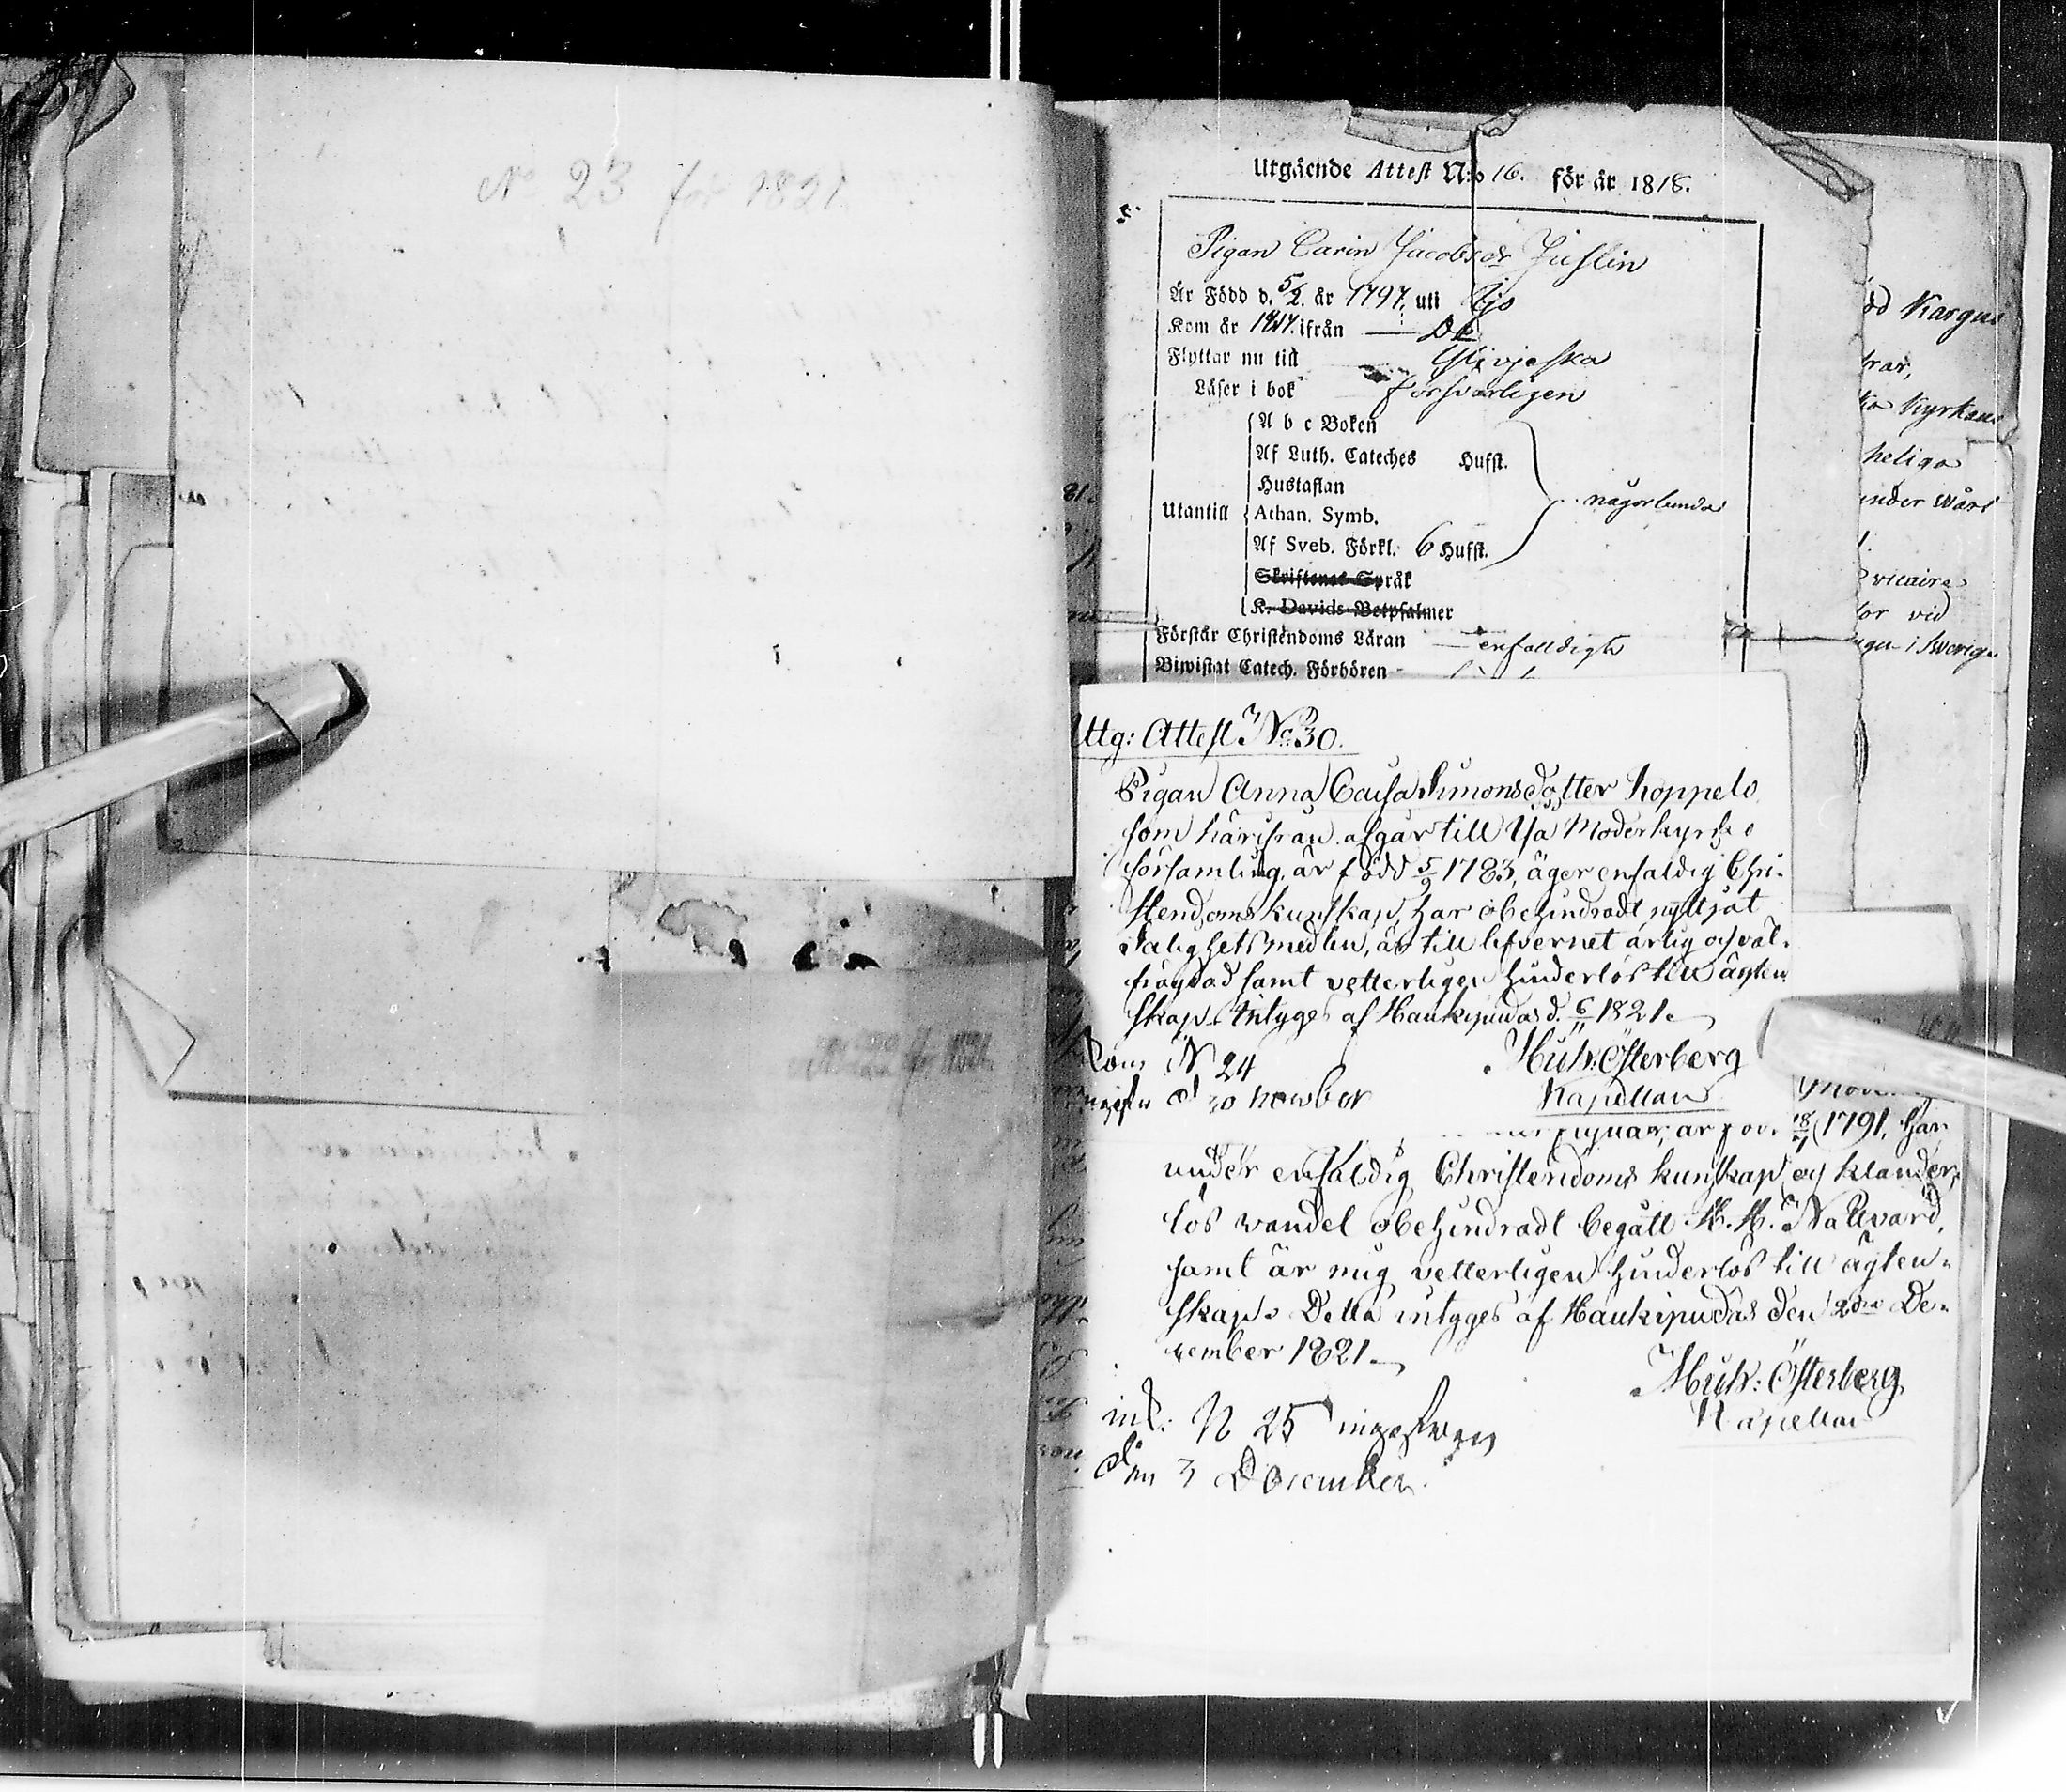 No 23 för 1821.
Utgående Attest N:o 16. för år 1818.
Pigan Carin Jacobsdr Juslin
Är Född d. 5/2. år 1797. uti Ijo
Kom år 1817. ifrån
Flyttar nu till Ylivjeska
Läser i bok försvarligen
A b c Boken
Af Luth. Cateches Hufst.
Hustaflan
Utantill Athan. Symb. någorlunda
Af Sveb. Förkl. 6 Hufst.
Skriftenes Språk
K. Davids Botpsalmer
Förstår Christendoms Läran enfalldigt
Biwistat Catech. Förhören
Kargus
rar,
Kyrkans
heliga
under Wårt
vicaire
vid
i Swerige
Uttg: Attest No 30.
Pigan Anna Caisa Simonsdotter Koppelo
som härifrån afgår till Ijå Moderkyrko
församling, är född 5/9 1783, äger enfaldig Chri-
stendoms kunskap, har obehindradt nyttjat
Salighetsmedlen, är till lefvernet ärlig och väl-
frägdad samt vetterligen hinderlös till ägten
skap. Intygas af Haukipudas d. 6/11 1821.
Kom N 24
Mich: Österberg
d 30 november
Kapellan
är föd. 18/7 1791, har
under enfaldig Christendoms kunskap och klander-
lös wandel obehindradt begått H. H. Nattvard,
samt är mig vetterligen hinderlös till ägten-
skap. Detta intyges af Haukipudas den 2dra De-
cember 1821.
Mich: Österberg
Kapellan
ink: N 25 ingifwen
den 3 December